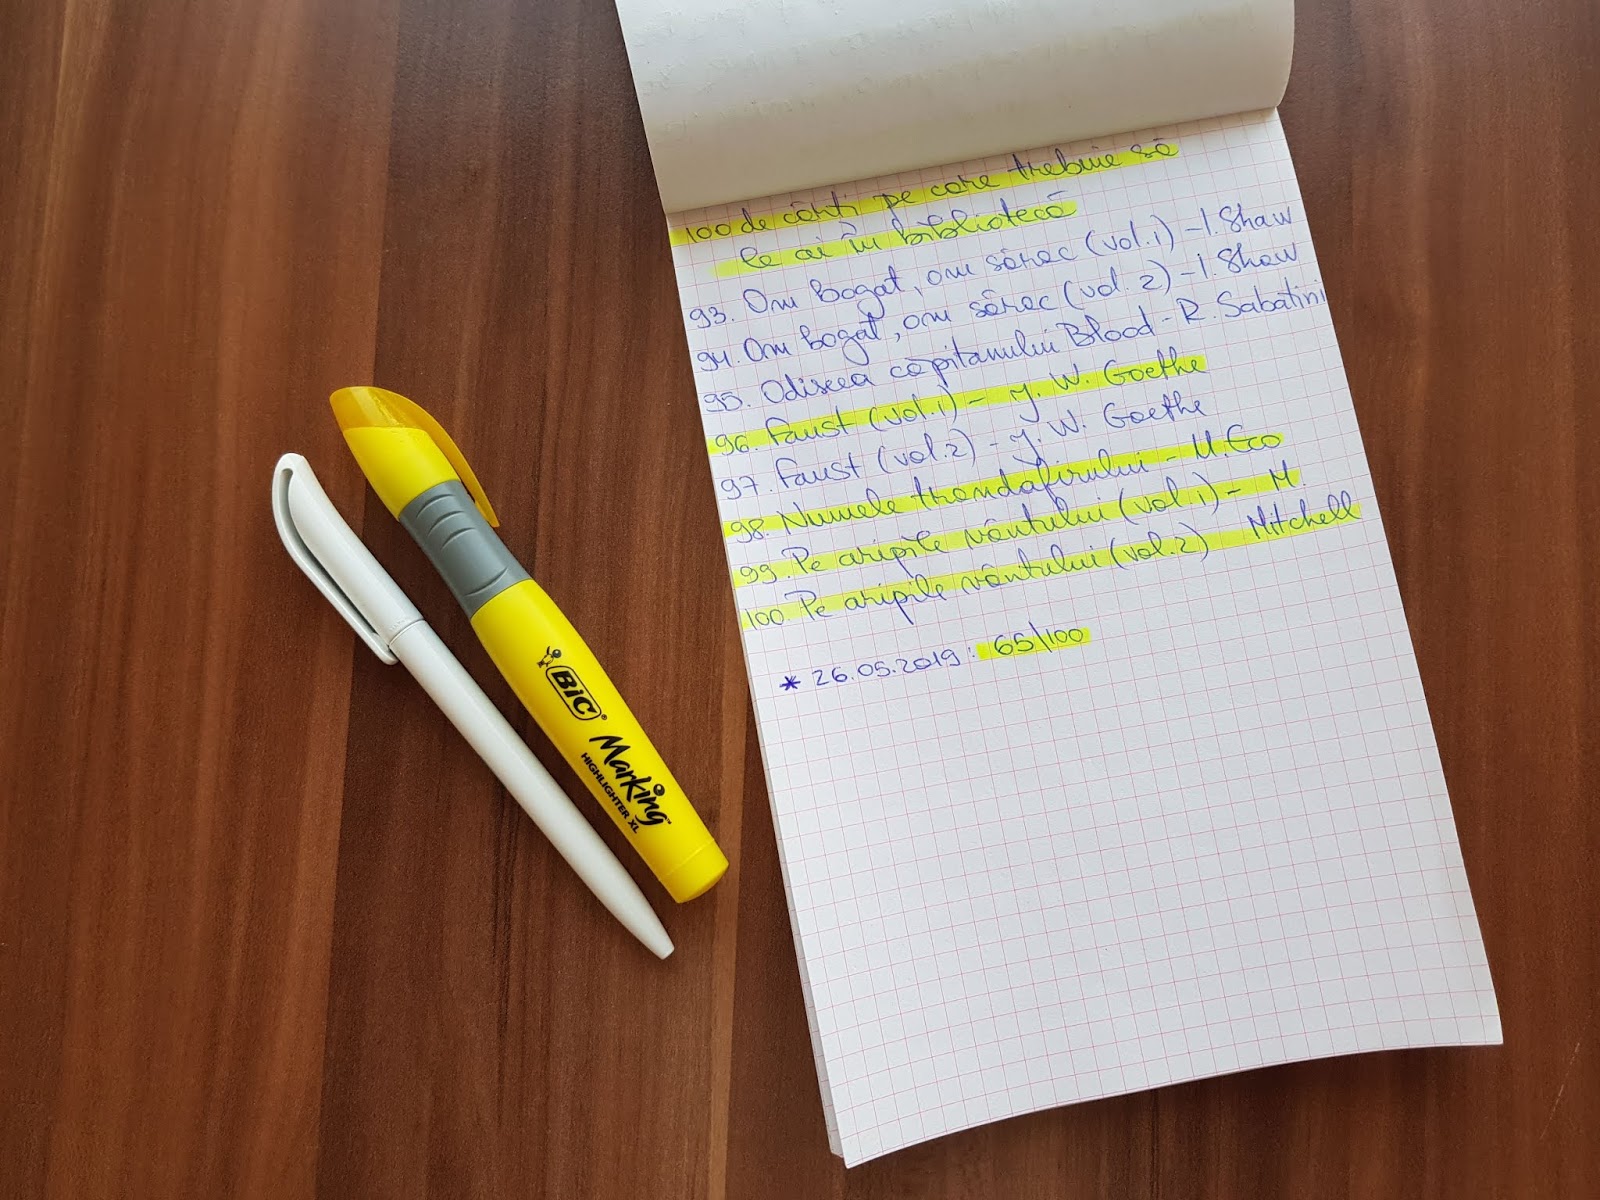 100 de cărți pe care trebuie să
le ai în bibliotecă
93. Om bogat, om sărac (vol.1) - I. Shaw
94. Om bogat, om sărac (vol. 2) - I. Shaw
95. Odiseea căpitanului Blood - R. Sabatini
96. Faust (vol.1) - J. W. Goethe
97. Faust (vol.2) - J. W. Goethe
98. Numele trandafirului - U. Eco
99. Pe aripile vântului (vol.1) - M.
100. Pe aripile vântului (vol.2) Mitchell
* 26.05.2019: 65/100
BIC
Marking™
HIGHLIGHTER XL